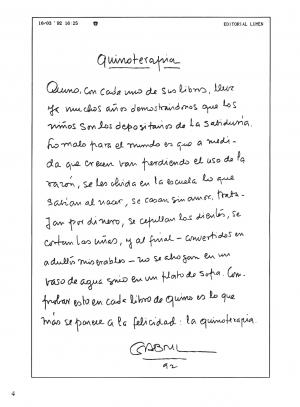 16-03 '92 16:25 ☎ EDITORIAL LUMEN
Quinoterapia
Quino, con cada uno de sus libros, lleva
ya muchos años demostrándonos que los
niños son los depositarios de la sabiduría.
Lo malo para el mundo es que a medi-
da que crecen van perdiendo el uso de la
razón, se les olvida en la escuela lo que
sabían al nacer, se casan sin amor, traba-
jan por dinero, se cepillan los dientes, se
cortan las uñas, y al final - convertidos en
adultos miserables - no se ahogan en un
vaso de agua sino en un plato de sopa. Com-
probar esto en cada libro de Quino es lo que
más se parece a la felicidad: la quinoterapia.
GABRIEL
92
4